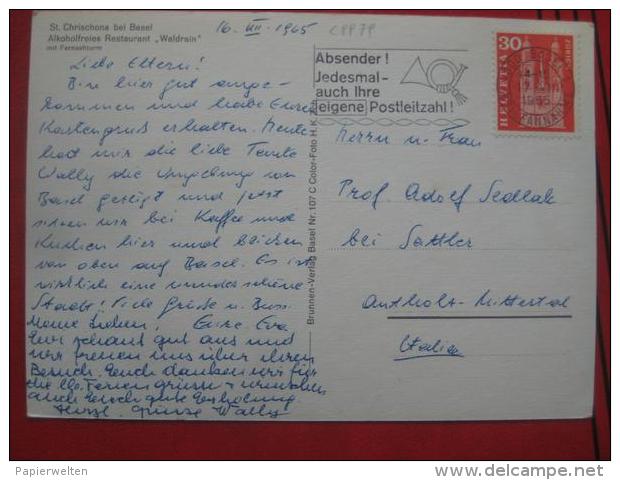 St. Chrischona bei Basel
Alkoholfreies Restaurant „Waldrain"
mit Fernsehturm
16. VII. 1965
CPP79
Liebe Eltern!
Bin hier gut ange-
kommen und habe Euren
Kartengruß erhalten. Heute
hat mir die liebe Tante
Wally die Umgebung von
Basel gezeigt und jetzt
sitzen wir bei Kaffee und
Kuchen hier und blicken
von oben auf Basel. Es ist
wirklich eine wunderschöne
Stadt! Viele Grüße u. Bussi
Eure Eva
Meine Lieben,
Eva schaut gut aus und
wir freuen uns über ihren
Besuch. Euch danken wir für
die lb. Feriengrüsse + wünschen
auch Euch gute Erholung
Herzl. Grüsse Wally
Brunnen-Verlag Basel Nr. 107 C Color-Foto H. K.
Absender!
Jedesmal-
auch Ihre
eigene Postleitzahl!
30
HELVETIA
1965
Herrn u. Frau
Prof. Adolf Sedlak
bei Sattler
Antholz-Mittertal
Italien
Papierwelten
delcampe.net